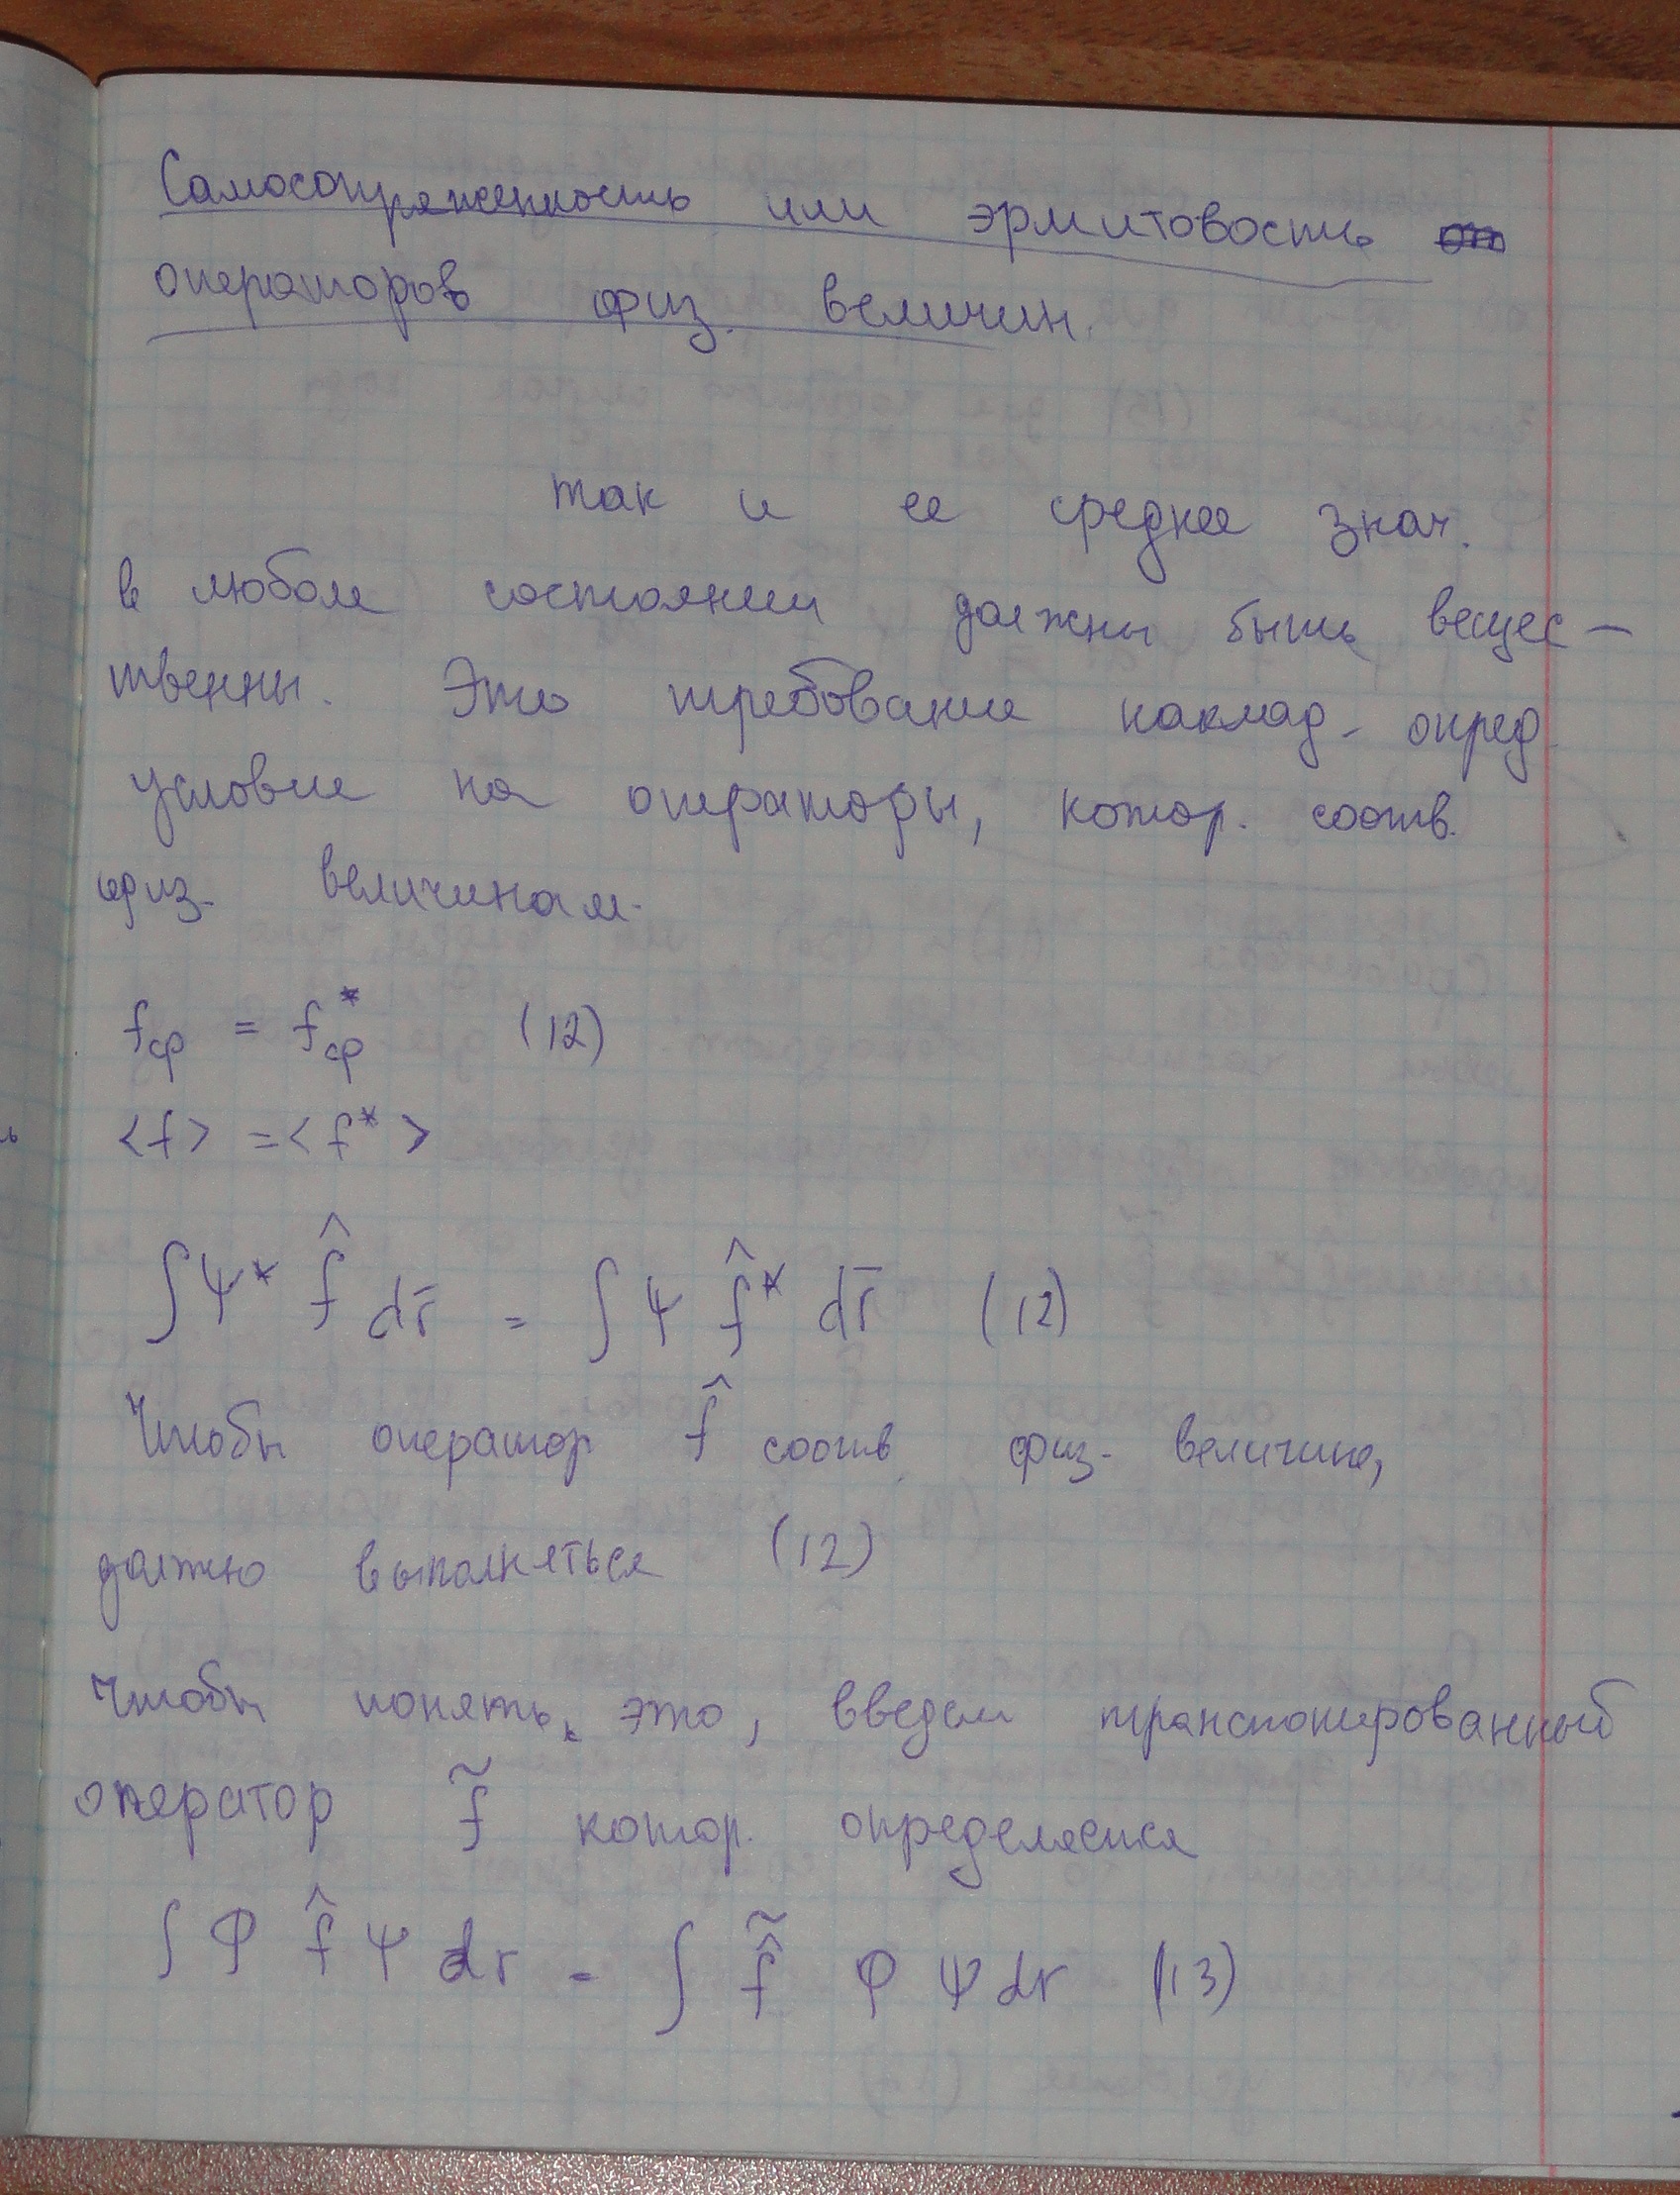 Самосопряженность или эрмитовость
операторов физ. величин.
так и ее среднее знач.
в любом состоянии должны быть вещес-
твенны. Это требование наклад. опред.
условие на операторы, котор. соотв.
физ. величинам.
f_ср = f*_ср (12)
<f> = <f*>
∫ψ* f̂ dr̄ = ∫ ψ f̂* dr̄ (12)
Чтобы оператор f̂ соотв. физ. величине,
должно выполняться (12)
Чтобы понять это, введем транспонированный
оператор f̃ котор. определяется
∫ φ f̂ ψ dr = ∫ f̂̃ φ ψ dr (13)